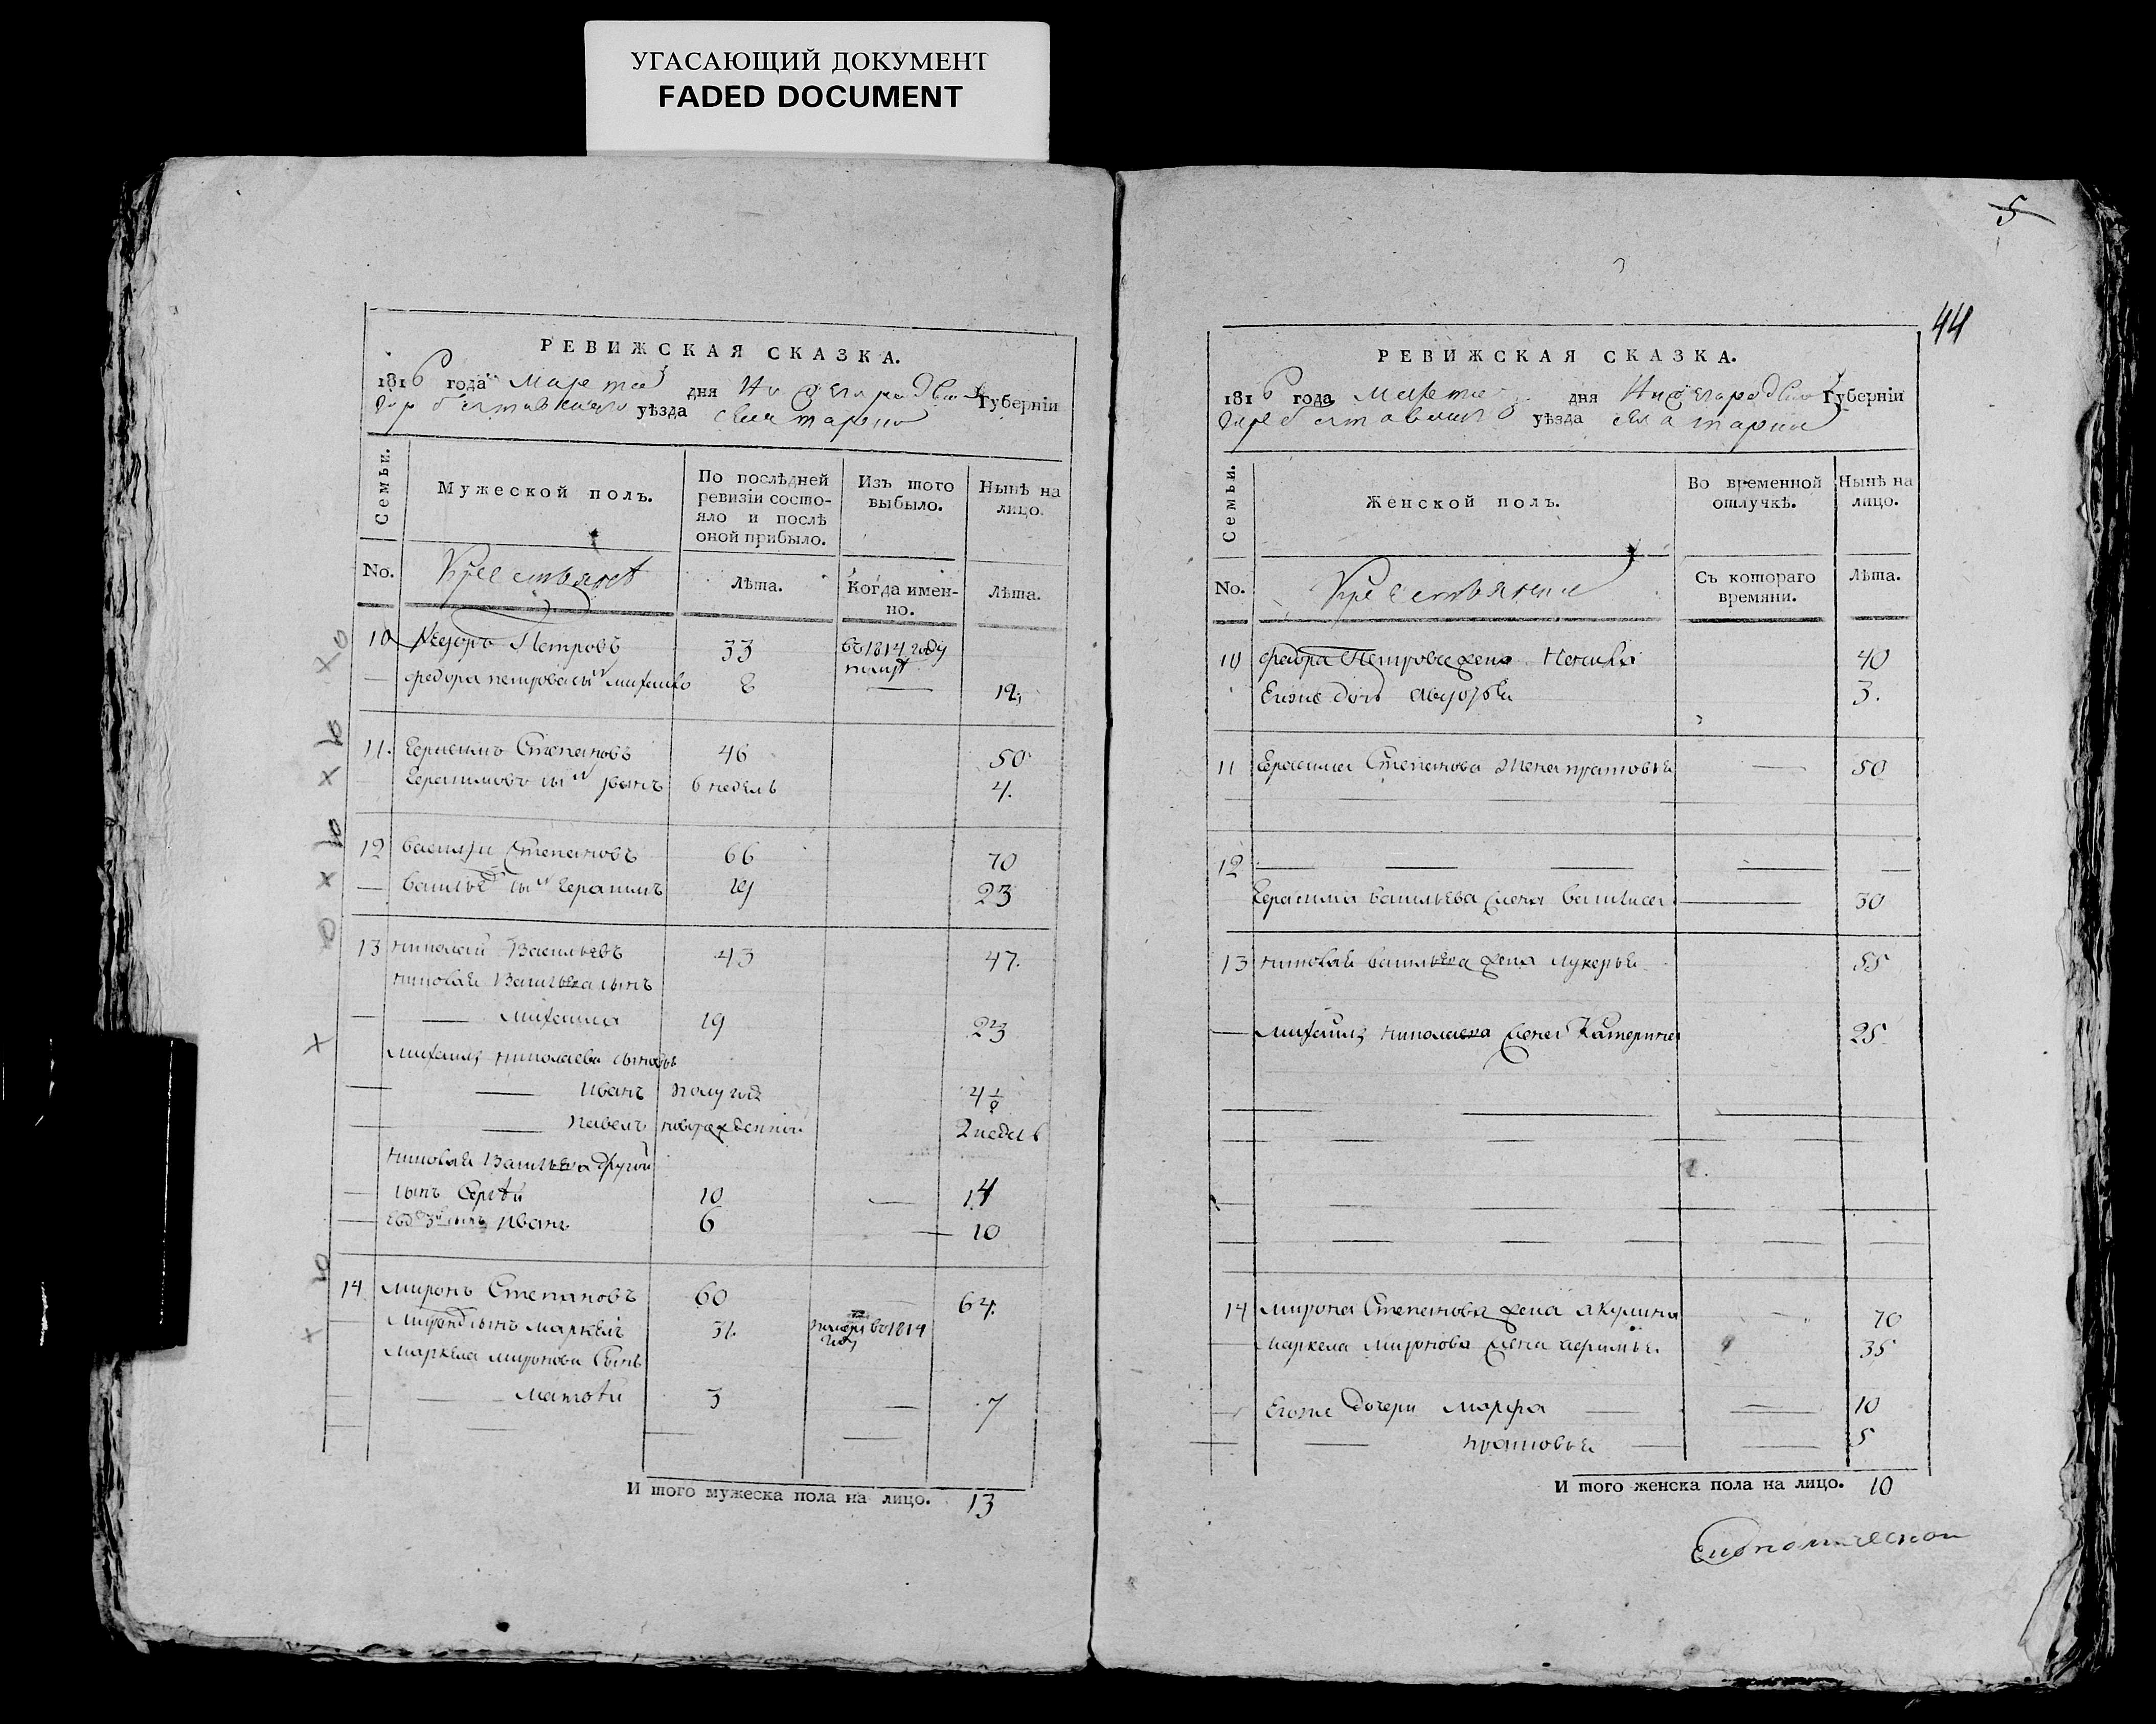 УГАСАЮЩИЙ ДОКУМЕНТ
FADED DOCUMENT
РЕВИЖСКАЯ СКАЗКА.
1816 года марта дня Нижегородской Губернїи
уѣзда
Семьи.
Мужеской полъ.
По послѣдней ревизїи состояло и послѣ оной прибыло.
Изъ того выбыло.
Нынѣ на лицо.
No.
Крестьянѣ
Лѣта.
Когда именно.
Лѣта.
10 Федоръ Петровъ 33 въ 1814 году
Федора Петрова сынъ 8 12
11. Герасимъ Степановъ 46 50
Герасимовъ сынъ 6 недель 4.
12 Василий Степановъ 66 70
сынъ Герасимъ 19 23
13 Николай Васильевъ 43 47.
Николая Васильева сынъ
Михаила 19 23
Михаила Николаева сыновья
Иванъ полугод 4 1/2
Павелъ новорожденной 2 недель
Николая Васильева другой
сынъ Сергѣй 10 14
сынъ Иванъ 6 10
14 Миронъ Степановъ 60 64.
сынъ Маркелъ 31. въ 1814
году
Маркела Миронова сынъ
Матвѣй 3 7
И того мужеска пола на лицо. 13
5
44
РЕВИЖСКАЯ СКАЗКА.
1816 года марта дня Нижегородской Губернїи
уѣзда
Семьи.
Женской полъ.
Во временной отлучкѣ.
Нынѣ на лицо.
No.
Съ котораго времяни.
Лѣта.
10 Федора Петрова жена 40
Егоже дочь 3.
11 Герасима Степанова жена 50
12
Герасима Васильева жена Василиса 30
13 Николая Васильева жена Лукерья 55
Михаила Николаева жена Катерина 25
14 Мирона Степанова жена Акулина 70
Маркела Миронова жена 35
Егоже дочери Марфа 10
5
И того женска пола на лицо. 10